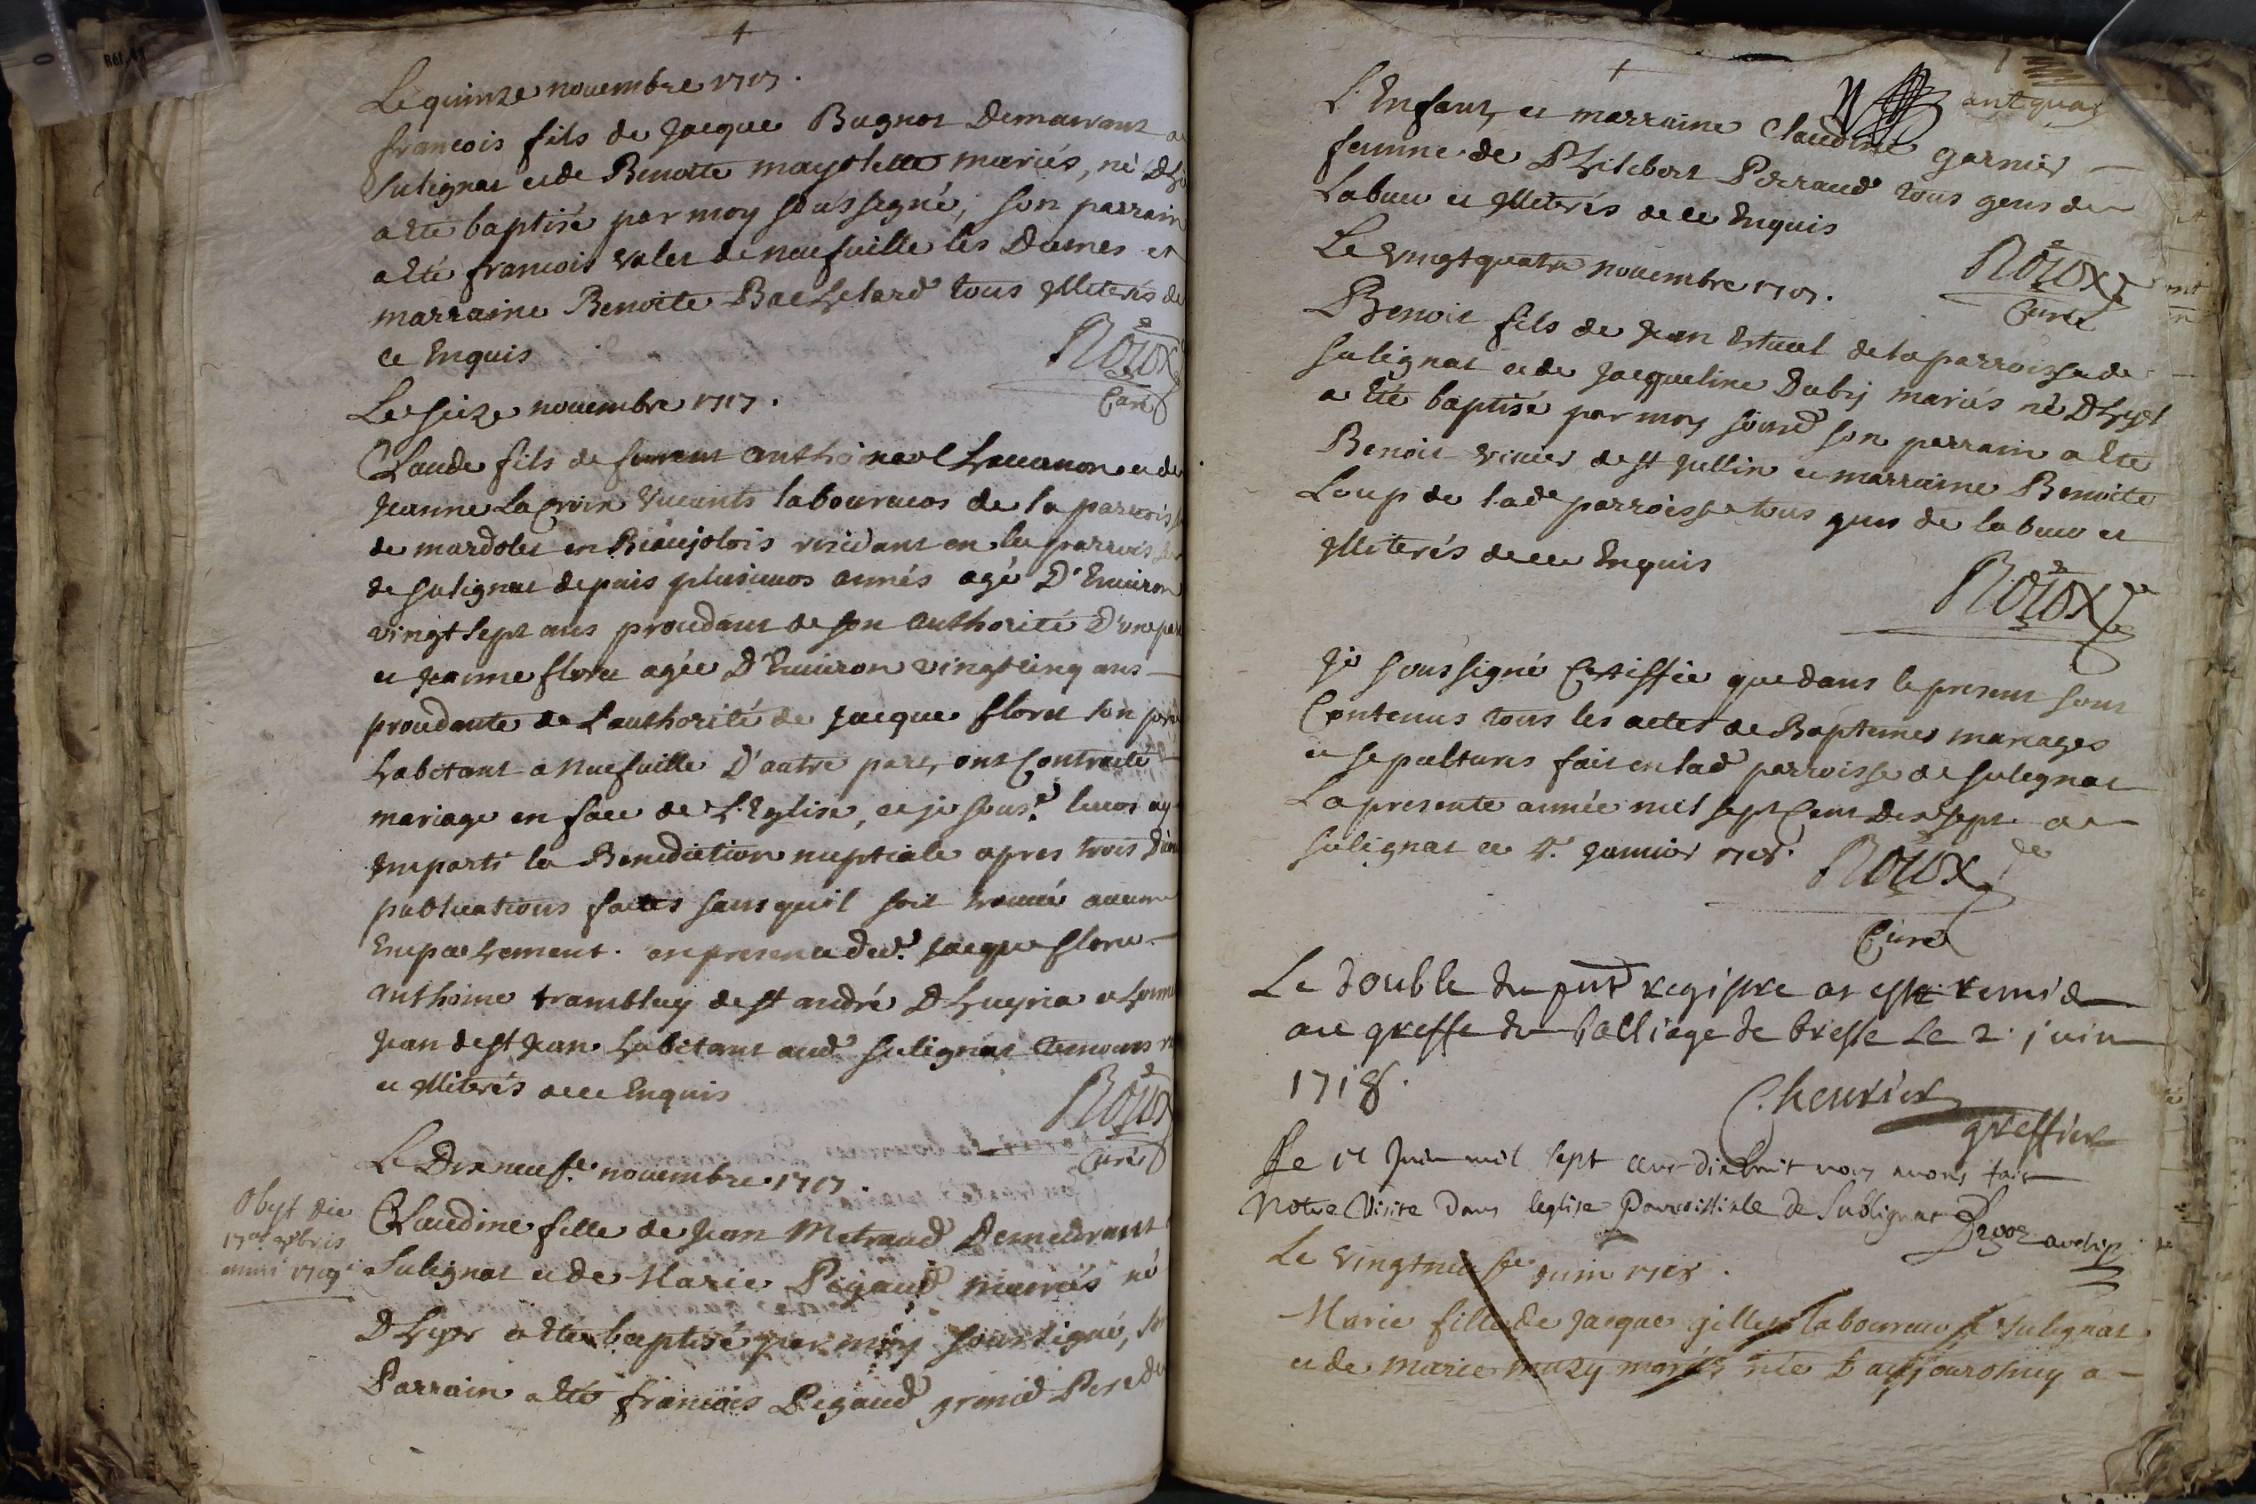 Le quinze novembre 1717.
francois fils de Jacque Bugnot Demeurant a
Sulignat et de Benoite mariés, né D'hier
a Eté baptisé par moy sousségné, son parrain
a Eté francois valet de neufville les Dames et
marraine Benoite Bachelard tous illiterés de
ce Enquis
Roüox
Curé
Le seize novembre 1717.
Claude fils de et de
Jeanne Lacroix vivants laboureurs de la parroisse
de mardolet en Biaujolois residant en la parroisse
de Sulignat depuis plusieurs annés agé D'Environ
vingt sept ans procedant de son authorité D'une part
et Jeanne floret agée D'Environ vingt cinq ans
procedante de L'authorité de Jacque floret son pere
habitant a Neufville D'autre part, ont Contracté
mariage en face de L'Eglise, et je souse. leurs ay
Imparti la Benediction nuptiale apres trois
publications faites sans quil soit trouvé aucun
Empaechement. en presence dud. Jacque floret
anthoine trambley de st andré D'huyria et
Jean de st Jean habitant aud Sulignat temoins
et illiterés de ce Enquis
Roüox
Curé
Le Dix neufe. novembre. 1717.
Obyt die
17a 9bris
anni 1719
Claudine fille de Jean Metraud Demeurant
Sulignat et de Marie Pegaud mariés né
D'hyer a Eté baptisé par moy soussigné, son
Parrain a Eté francois Pegaud grand Pere de
L'Enfant, et marraine Claudine garnier
femme de Philibert Perraud tous gens de
Labeur et illiterés de ce Enquis
Roüox
Curé
Le vingt quatre novembre 1717.
Benoit fils de Jean de la parroisse de
Sulignat et de Jacqueline Duby mariés né D'hyer
a Eté baptisé par moy sousd son parrain a Eté
Benoit de st Jullin et marraine Benoite
Loup de lade parroisse tous gens de labeur et
illiterés de ce Enquis
Roüox
Je soussigné Certiffie que dans le present sont
Contenus tous les actes de Baptemes mariages
et sepultures fait en lad parroisse de Sulignat
La presente année mil sept Cent Dix sept a
Sulignat ce Janvier 1718.
Roüox
Curé
Le double du pnt registre at este remis
au greffe du balliage de bresse Le 2. juin
1718.
Cheurier
greffier
Le Juin mil sept cent dixhuit nous avons fait
Notre Visite dans leglise Parroissialle de Sublignat
Le vingtneufe Juin 1718.
Marie fille de Jacque gilles laboureur a Sulignat
et de marie muzy mariés née aujourdhuy a